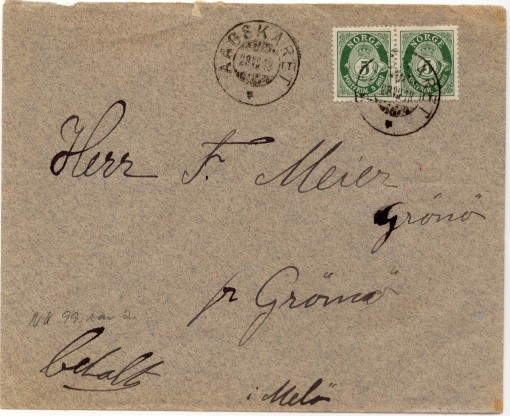 AAGSKARET
29 VII 18
NORGE NORGE
5 5
POSTFRIM. 5 ØRE POSTFRIM. 5 ØRE
Herr F. Meier
Grönö
pr Grönnö
NK 99 var 2.
betalt
i Melö